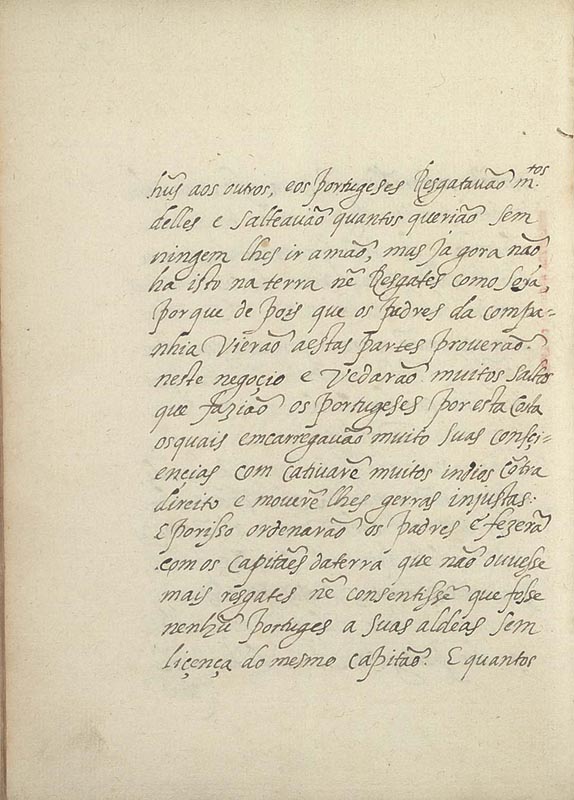 hũs aos outros, eos portugeses Resgatavão m.tos
delles e Salteavão quantos querião Sem
ningem lhes ir amão, mas Já gora não
ha isto na terra nẽ Resgates como Soya,
porque de pois que os padres da compa=
nhia Vierão aestas partes proverão
neste negoçio e Vedarão muitos Saltos
que fazião os portugeses por esta Costa
osquais emcarregavão muito Suas consçi=
ençias com Cativarẽ muitos indios cõtra
direito e moverẽ lhes gerras injustas:
E porisso ordenarão os padres e fezerã
com os Capitães daterra que não ouvesse
mais resgates nẽ consentissẽ que fosse
nenhũ portuges a Suas aldeas Sem
liçença do mesmo Capitão. E quantos